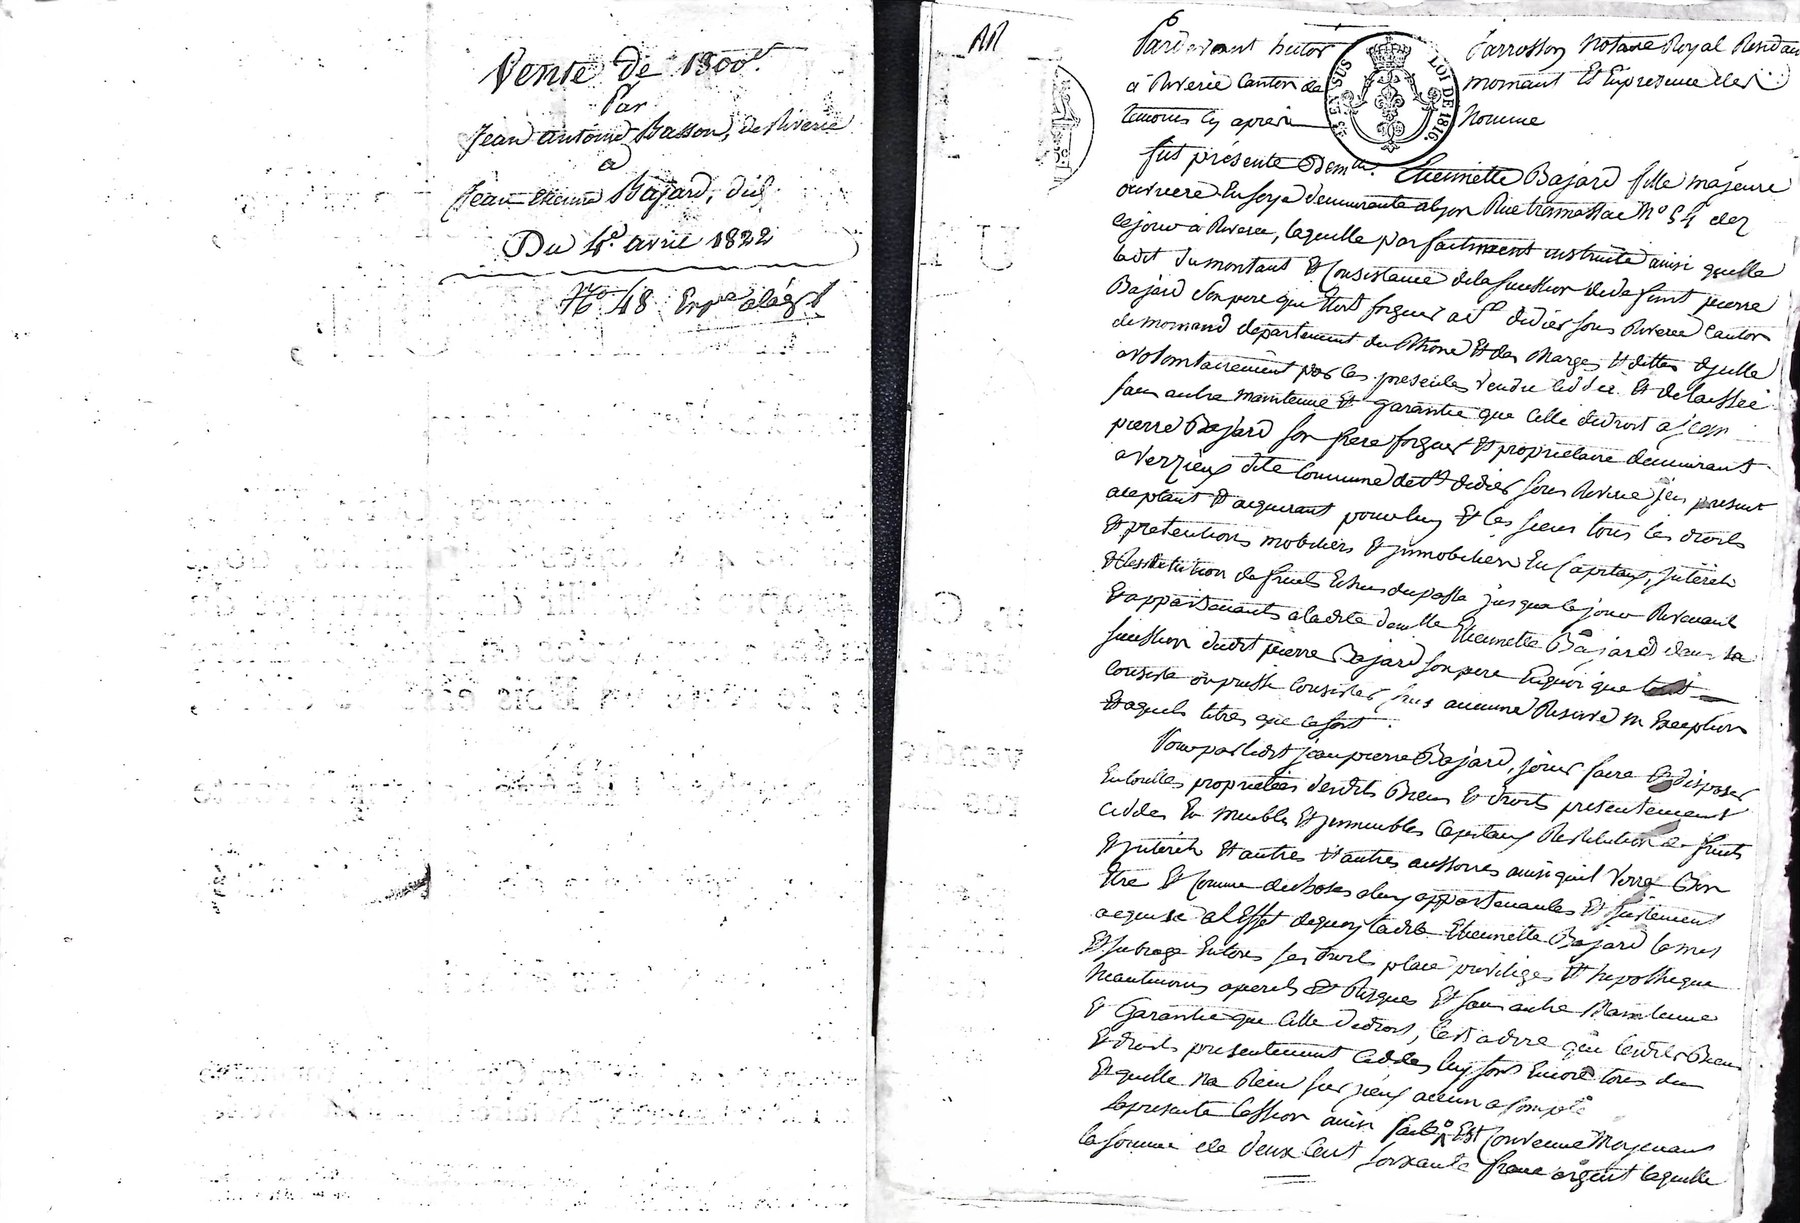 Vente de 1500f.
Par
Jean antoine Basson, de Riverie
a
Jean etienne Bajard, dud.
Du 4e. avril 1822
No. 48
Pardevant hector Parrosson Notaire Royal Residant
a Riverie Canton de mornant Et En presence des
temoins Cy apres Nommé
EN SUS
LOI DE 1816
fut présente Demlle. Etiennette Bajard fille majeure
ouvriere En soye demeurante alyon Rue tramassac No 54 de
ce jour a Riverie, laquelle parfaitement instruite ainsi quelle
la dit du montant Et Consistance de la succession de defunt pierre
Bajard Son pere que Etoit forgeur a St didier sous Riverie Canton
de mornand departement du Rhône Et des Charges Et dettes dycelle
a volontairement par les presentes vendu cedée Et delaissée
sans autre maintenue Et garantie que celle de droit a jean
pierre Bajard son frere forgeur Et proprietaire demeurant
a Verzieux dite Commune de St didier sous Riverie jcy present
aceptant Et aquerant pour luy Et les siens tous les droits
Et pretentions mobiliers Et jmmobiliers En Capitaux, jnterêts
Et Restitution de fruits Echus du passé jusqua ce jour Revenant
Et appartenants a ladite demlle Etiennette Bajard dans la
succession dudit pierre Bajard son pere En quoi que tout
consiste ou puisse consister sans aucune Reserve ni Exception
Et a quels titres que ce soit.
Pour par ledit jean pierre Bajard, jouir faire Et disposer
En toutes proprietées desdits Biens Et droits presentement
cedées En meubles Et jmmeubles Capitaux Restitution de fruits
Et jnterêts Et autres Et autres accessoires ainsi quil Verra Bon
Etre Et Comme de choses a luy appartenantes Et justement
acquise a l Effet de quoy ladite Etiennette Bajard le met
Et subroge En tous ses droits place privileges Et hypotheque
Neantmoins a perils Et Risques Et sans autre Maintenue
Et Garantie que Celle de droit, c'est a dire que lesdits Biens
Et droits presentement cedées luy sont Encore tous dus
Et quelle na Rien sur jceux aucun acompte
la presente Cession ainsi faite Est Convenue Moyenant
la somme de deux Cent soixante franc argent laquelle